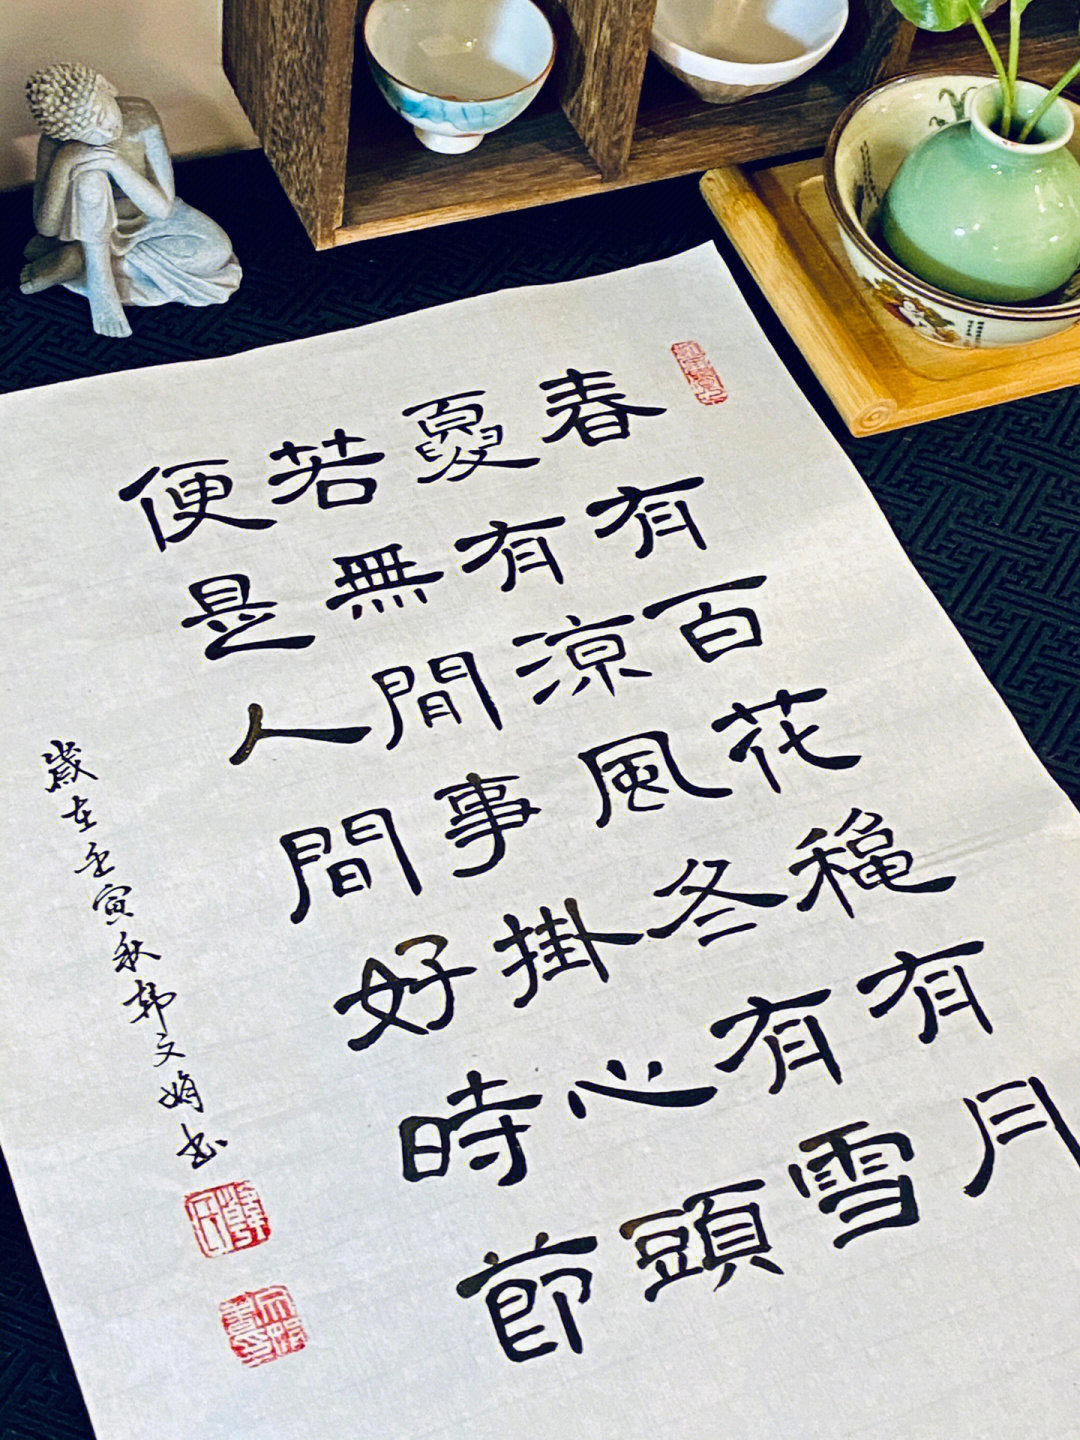 春有百花穐有月
夏有涼風冬有雪
若無間事掛心頭
便是人間好時節
歲在壬寅秋韩文娟书